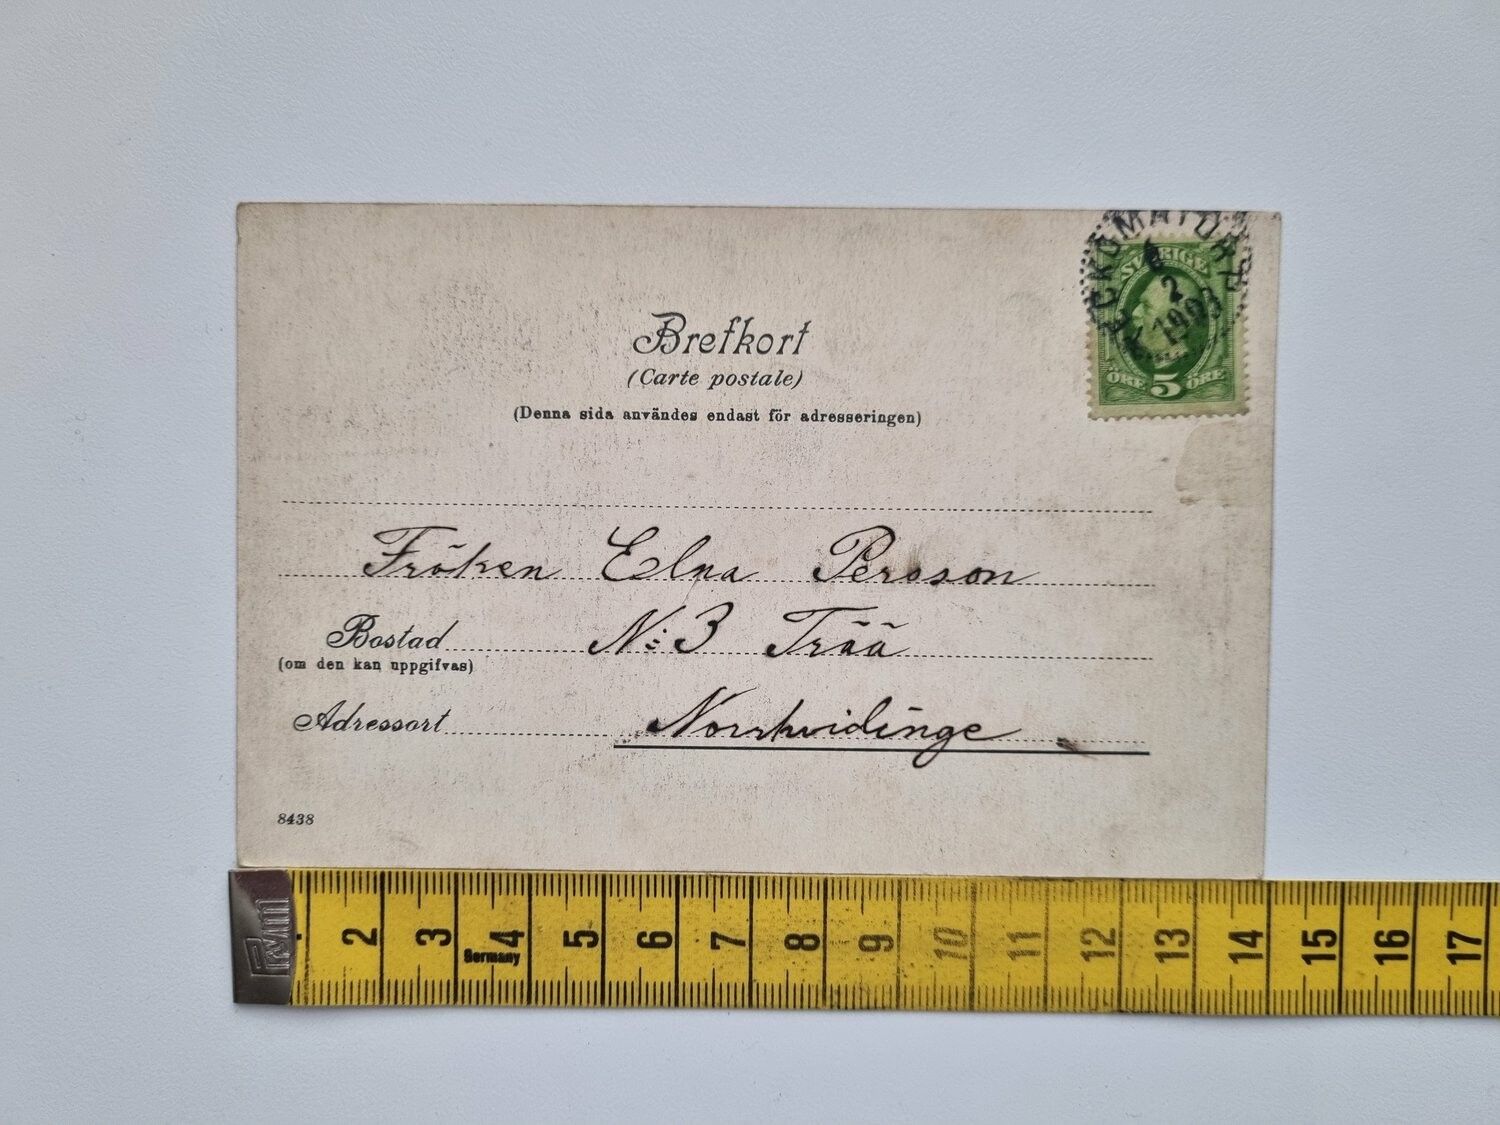 SVERIGE
2
5
ÖRE ÖRE
Brefkort
(Carte postale)
(Denna sida användes endast för adresseringen)
Fröken Elna Persson
Bostad N:3 Trää
(om den kan uppgifvas)
Adressort Norrhvidinge
8438
2 3 4 5 6 7 8 9 10 11 12 13 14 15 16 17
Germany